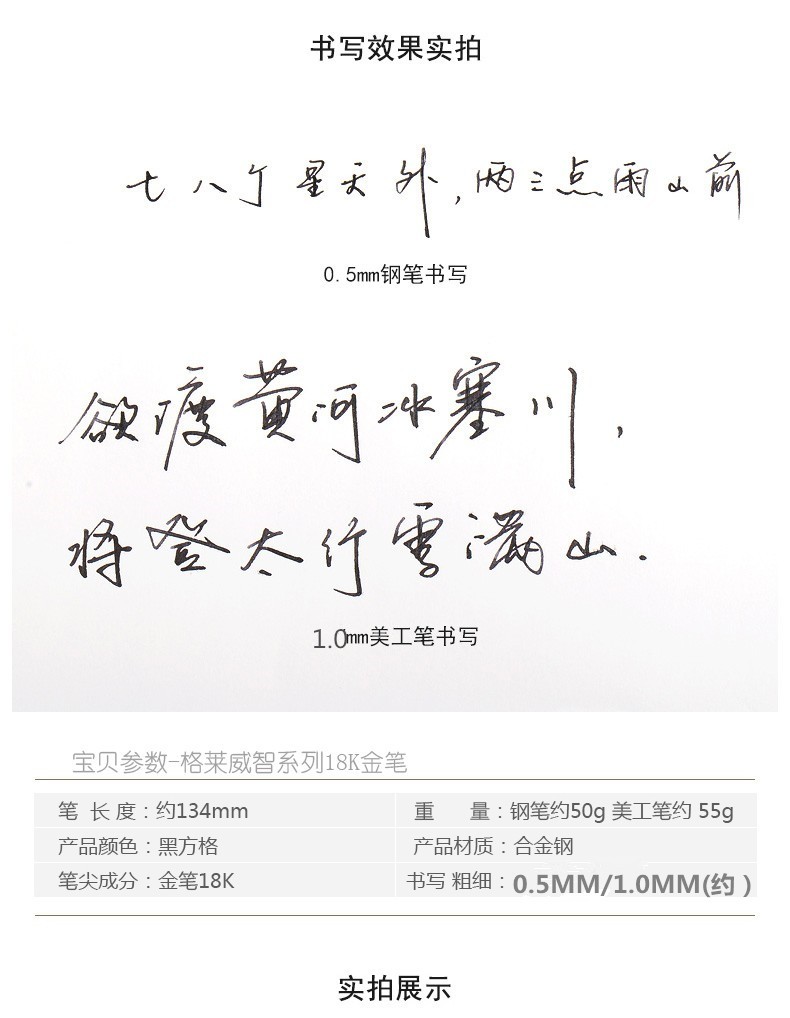 书写效果实拍
七八个星天外,两三点雨山前
0.5mm钢笔书写
欲渡黄河冰塞川,
将登太行雪满山.
1.0mm美工笔书写
宝贝参数-格莱威智系列18K金笔
笔 长 度：约134mm
重 量：钢笔约50g 美工笔约 55g
产品颜色：黑方格
产品材质：合金钢
笔尖成分：金笔18K
书写 粗细：0.5MM/1.0MM(约 )
实拍展示